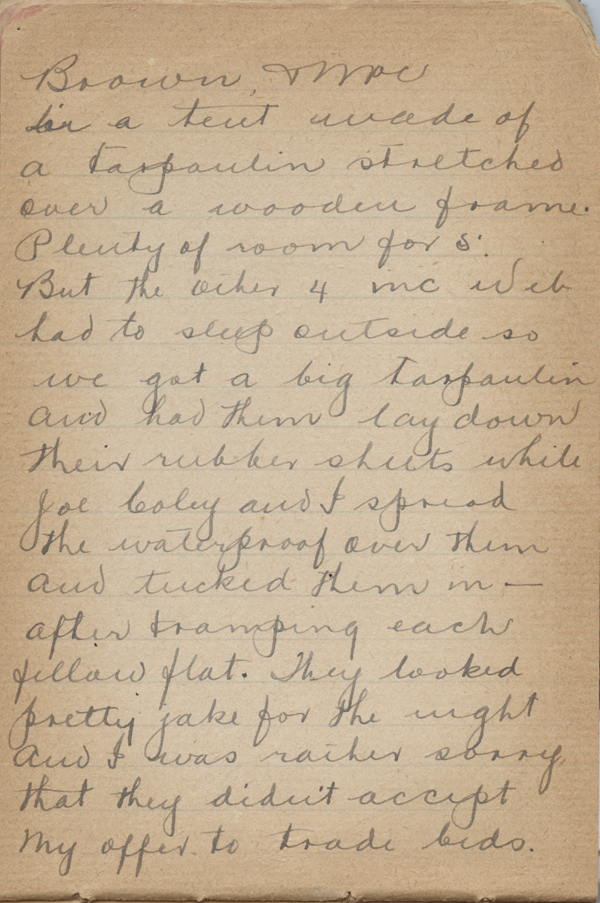 Brown, & Mac
in a tent made of
a tarpaulin stretched
over a wooden frame.
Plenty of room for 5.
But the other 4 inc
had to sleep outside so
we got a big tarpaulin
and had them lay down
their rubber sheets while
Joe Coley and I spread
the waterproof over them
and tucked them in —
after tramping each
fellow flat. They looked
pretty jake for the night
and I was rather sorry
that they didn't accept
my offer to trade beds.